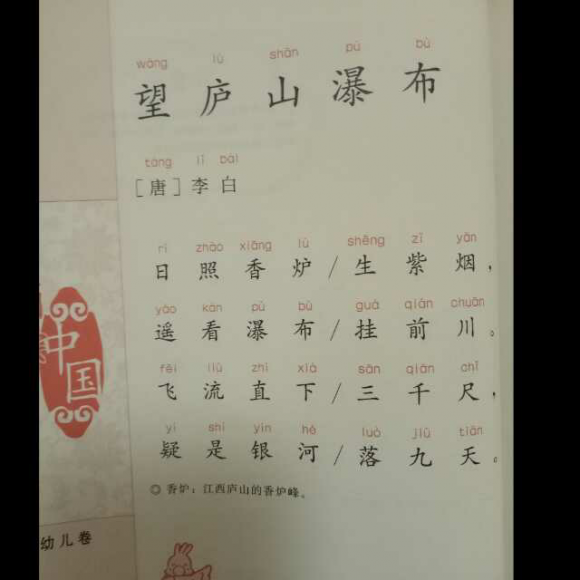 wàng lú shān pù bù
望庐山瀑布
táng lǐ bái
［唐］李白
rì zhào xiāng lú shēng zǐ yān
日照香炉/生紫烟，
yáo kàn pù bù guà qián chuān
遥看瀑布/挂前川。
fēi liú zhí xià sān qiān chǐ
飞流直下/三千尺，
yí shì yín hé luò jiǔ tiān
疑是银河/落九天。
◎ 香炉：江西庐山的香炉峰。
中国
幼儿卷